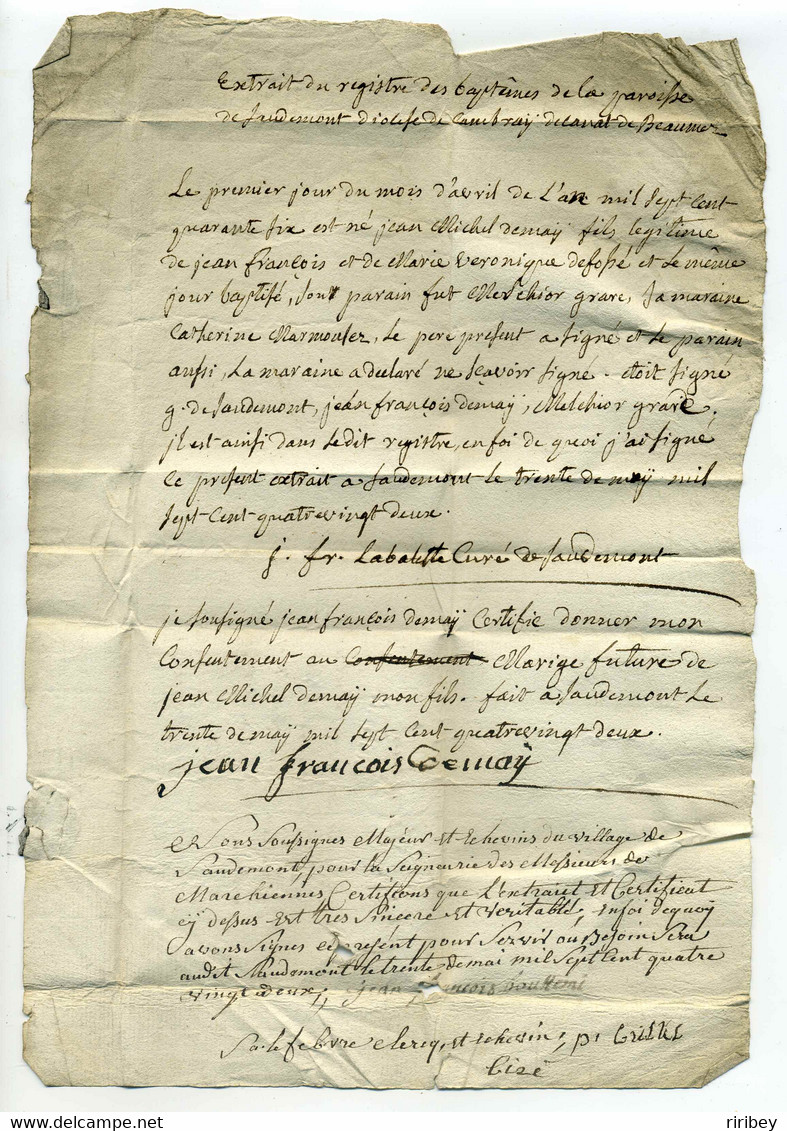 Extrait du registre des baptêmes de la paroisse
de Saudemont diocese de Cambray decanat de Beaumez
Le premier jour du mois d'avril de L'an mil sept cent
quarante six est né jean Michel demaÿ fils legitime
de jean françois et de Marie Veronique defossé et le même
jour baptisé, son parain fut Melchior grare, sa maraine
Catherine Marmousez, le pere present a signé et le parain
aussi, La maraine a declaré ne sçavoir signé. etoit signé
g. de Saudemont, jean françois demaÿ, Melchior grare.
jl est ainsi dans ledit registre, en foi de quoi j'ai signé
ce present extrait a Saudemont le trente de maÿ mil
sept cent quatrevingt deux.
j. fr. Labalette Curé de Saudemont
je sousigné jean françois demaÿ Certifie donner mon
Consentement au Consentement Marige future de
jean Michel demaÿ mon fils. fait a Saudemont le
trente de maÿ mil sept cent quatrevingt deux.
jean francois Demaÿ
Nous Soussignes Majeur et Echevins du village de
Saudemont, pour la Seigneurie des Messieurs de
Marchiennes Certifions que L'extrait et Certificat
cÿ dessus est tres sincere et veritable, en foi de quoy
avons signes ce present pour servir ou Besoin sera
audit Saudemont le trente de mai mil sept cent quatre
vingt deux, jean francois
Lefebvre clercq, et echevin,